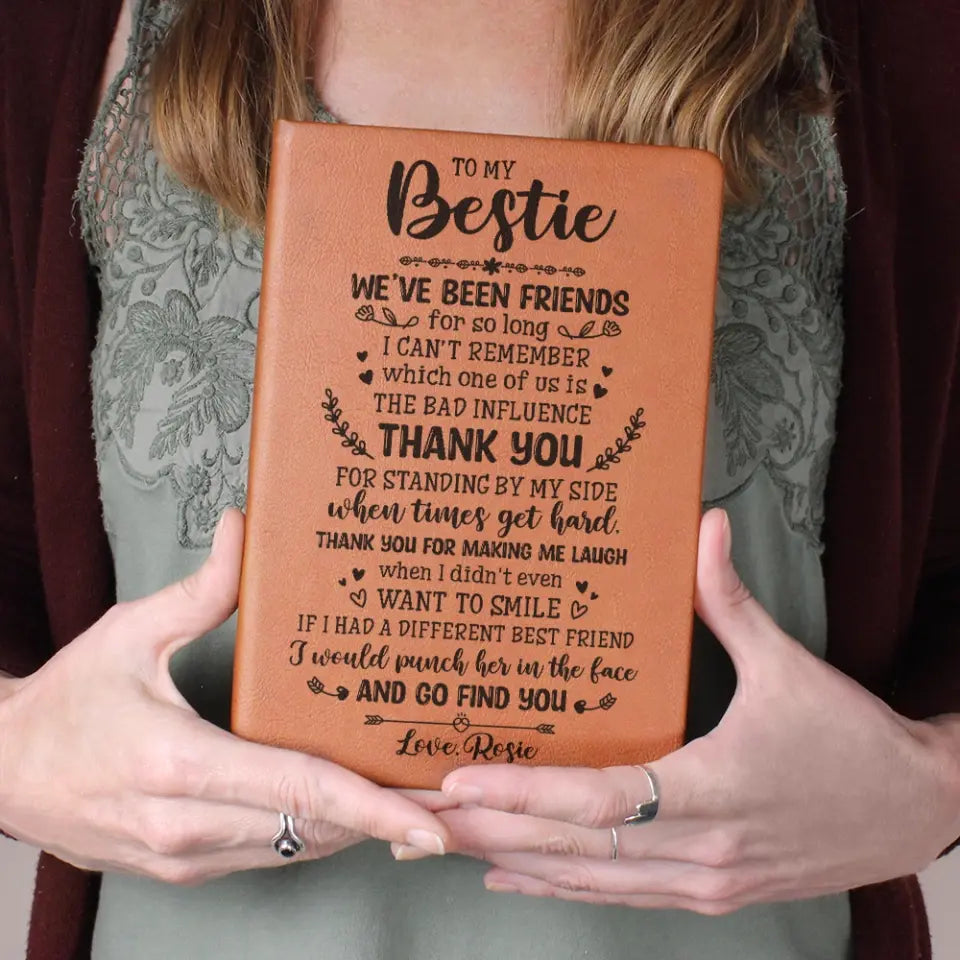 TO MY
Bestie
WE'VE BEEN FRIENDS
for so long
I CAN'T REMEMBER
which one of us is
THE BAD INFLUENCE
THANK YOU
FOR STANDING BY MY SIDE
when times get hard.
THANK YOU FOR MAKING ME LAUGH
when I didn't even
WANT TO SMILE
IF I HAD A DIFFERENT BEST FRIEND
I would punch her in the face
AND GO FIND YOU
Love, Rosie